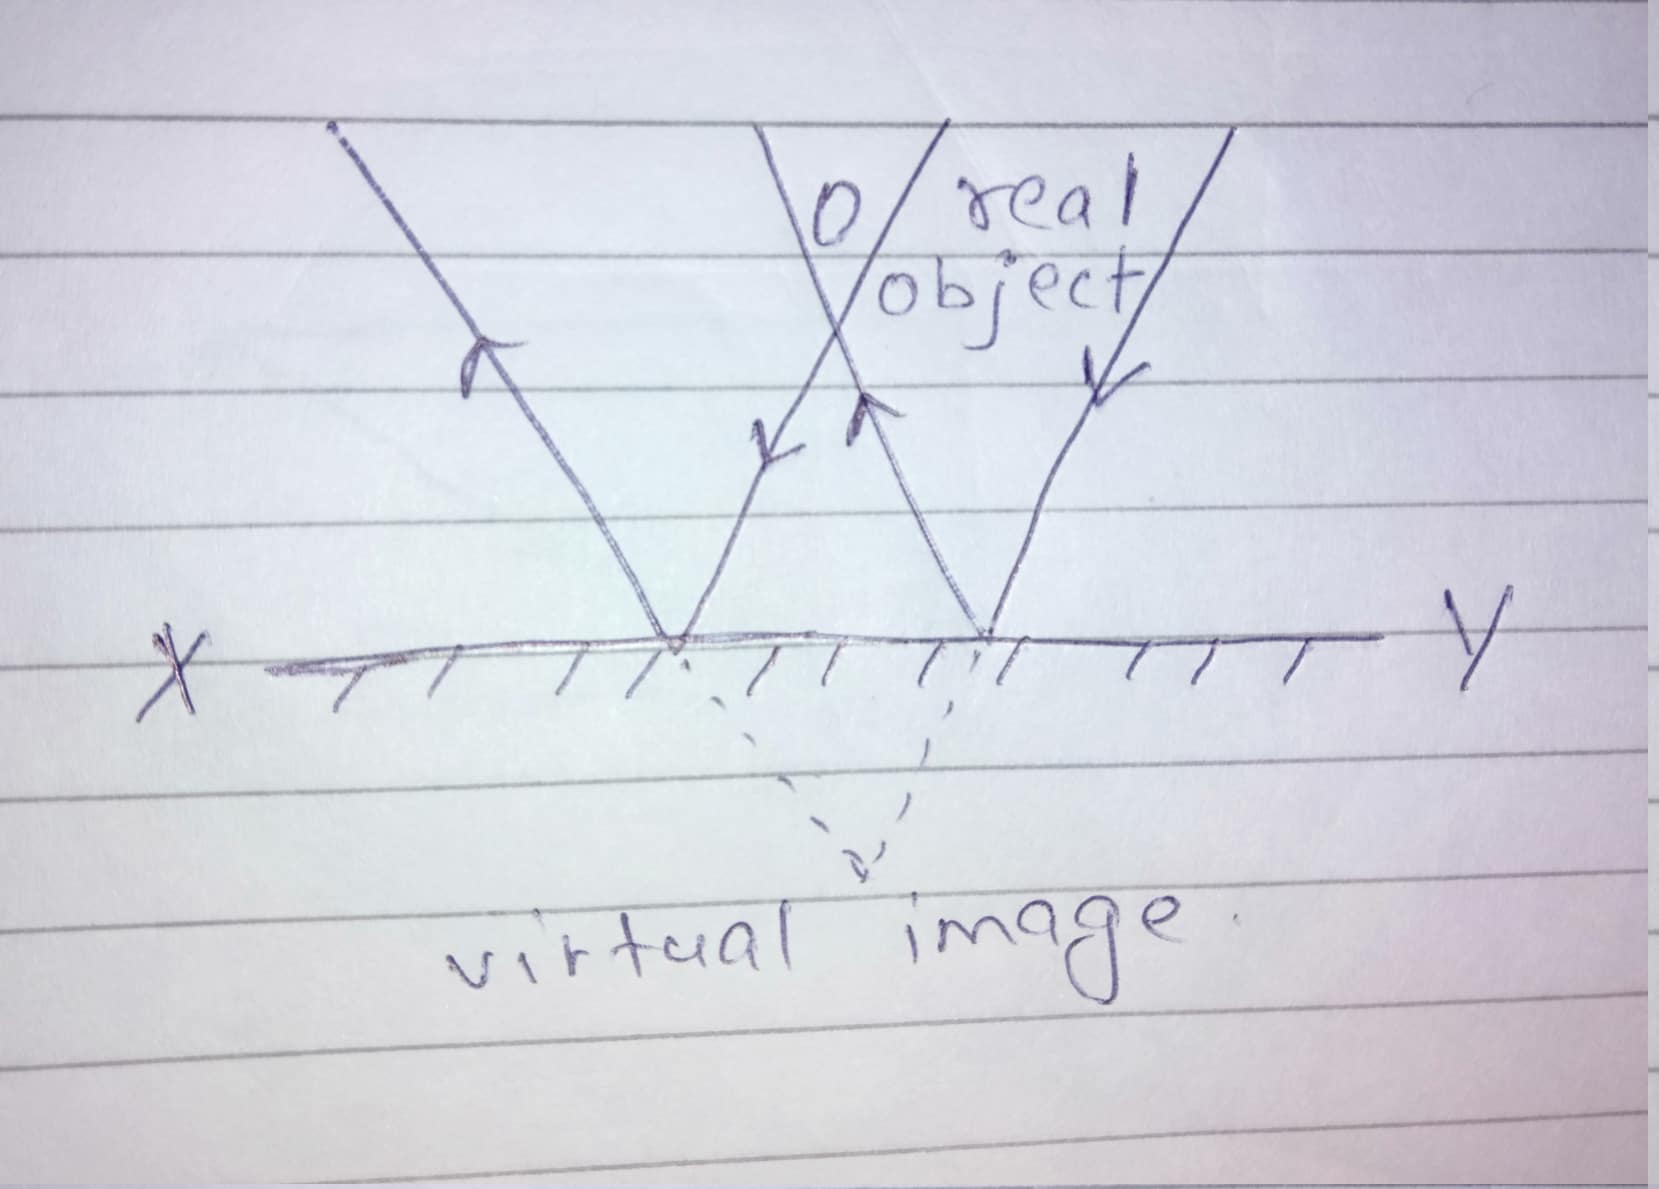 O real
object
X Y
virtual image.